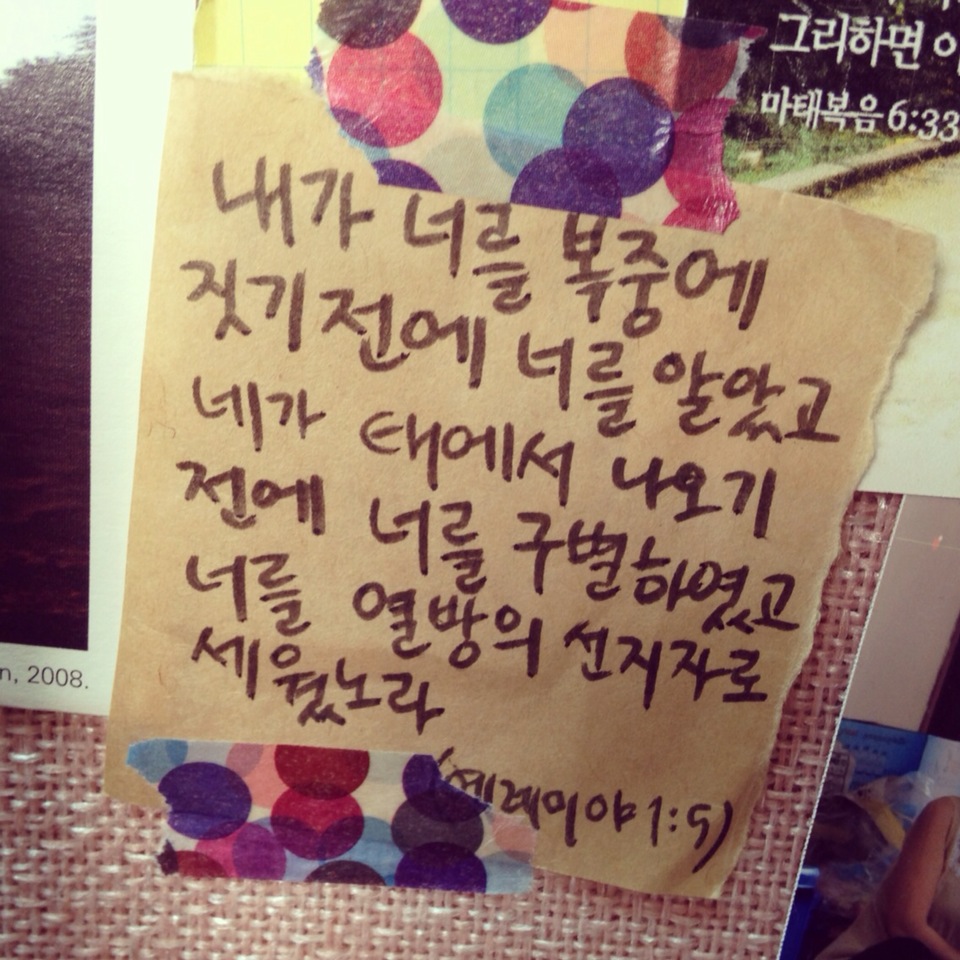 그리하면
마태복음 6:33
내가 너를 복중에
짓기 전에 너를 알았고
네가 태에서 나오기
전에 너를 구별하였고
너를 열방의 선지자로
세웠노라
(예레미야 1:5)
n, 2008.